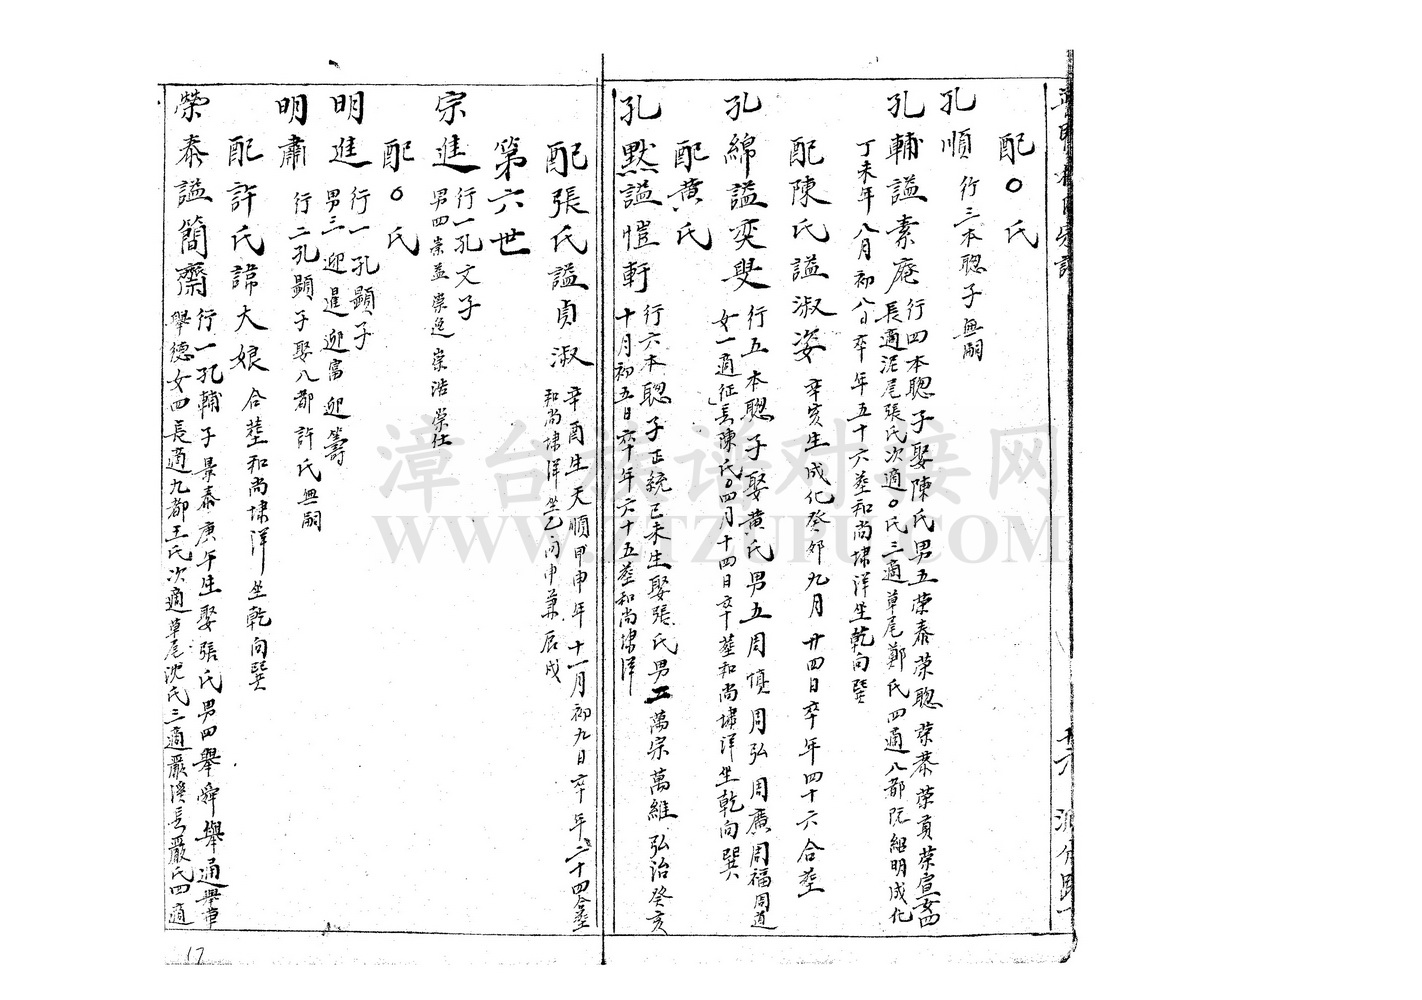 配〇氏
孔順 行三本聰子無嗣
孔輔謚素庵 行四本聰子娶陳氏男五榮泰榮聰榮恭榮貢榮宣女四
長適泥尾張氏次適〇氏三適草尾鄭氏四適八都阮紹明成化
丁未年八月初八日卒年五十六葬和尚埭洋坐乾向巽
配陳氏謚淑姿 辛亥生成化癸卯九月廿四日卒年四十六合葬
孔綿謚奕叟 行五本聰子娶黄氏男五周慎周弘周廣周福周道
女一適征長陳氏〇四月十四日卒葬和尚埭洋坐乾向巽
配黄氏
孔默謚愷軒 行六本聰子正統己未生娶張氏男二萬宗萬維弘治癸亥
十月初五日卒年六十五葬和尚埭洋
配張氏謚貞淑 辛酉生天順甲申年十一月初九日卒年二十四合葬
和尚埭洋坐乙向申兼辰戌
第六世
宗進 行一孔文子
男四崇益崇逸崇浩崇仕
配〇氏
明進 行一孔顯子
男三迎暹迎富迎籌
明肅 行二孔顯子娶八都許氏無嗣
配許氏諱大娘 合葬和尚埭洋坐乾向巽
榮泰謚簡齋 行一孔輔子景泰庚午生娶張氏男四舉舜舉通舉章
舉德女四長適九都王氏次適草尾沈氏三適嚴溪長嚴氏四適
17
漳台族谱对接网
WWW.ZTZUPU.COM